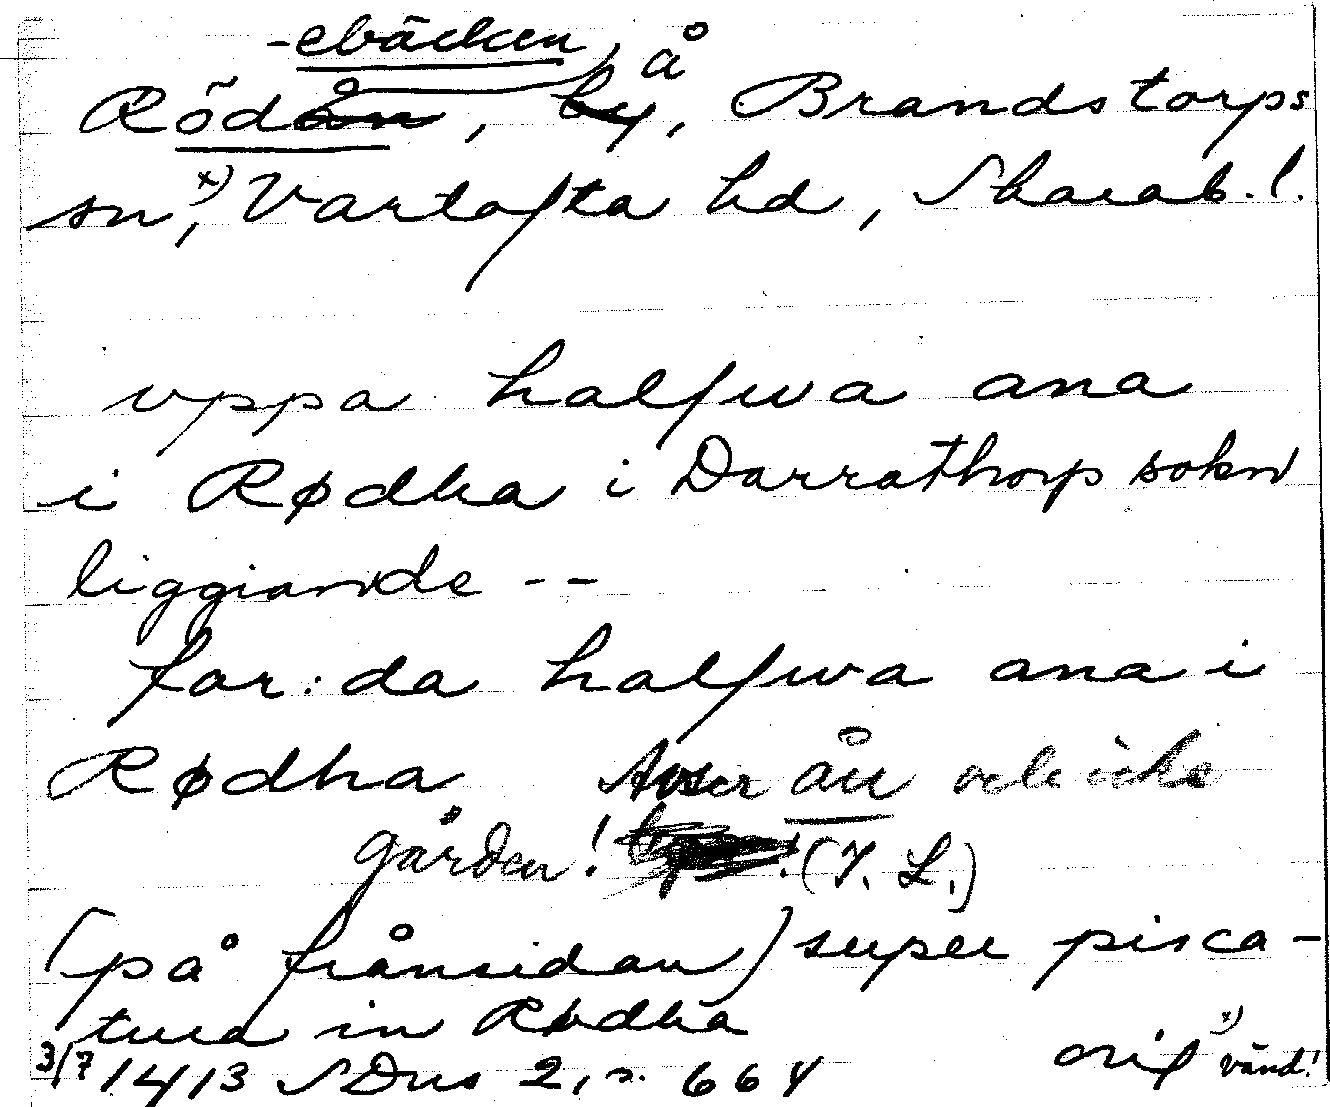 -ebäcken, å
Rödån, by, Brandstorps
sn,x) Vartofta hd, Skarab. l.
uppa halfwa ana
i Rødha i Darrathorp sokn
liggiande --
for: da halfwa ana i
Rødha Avser ån och icke
gården! (I. L.)
(på frånsidan) super pisca-
tura in Rødha
3/7 1413 SDns 2, s. 664 orig x) vänd!